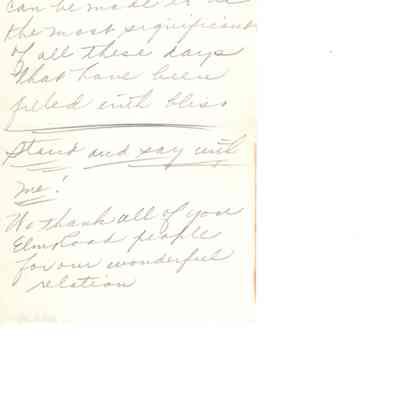 can be made it as
the most significant
of all these days
that have been
filled with bliss.
Stand and say with
me!
We thank all of you
Elm Road people
for our wonderful
relation